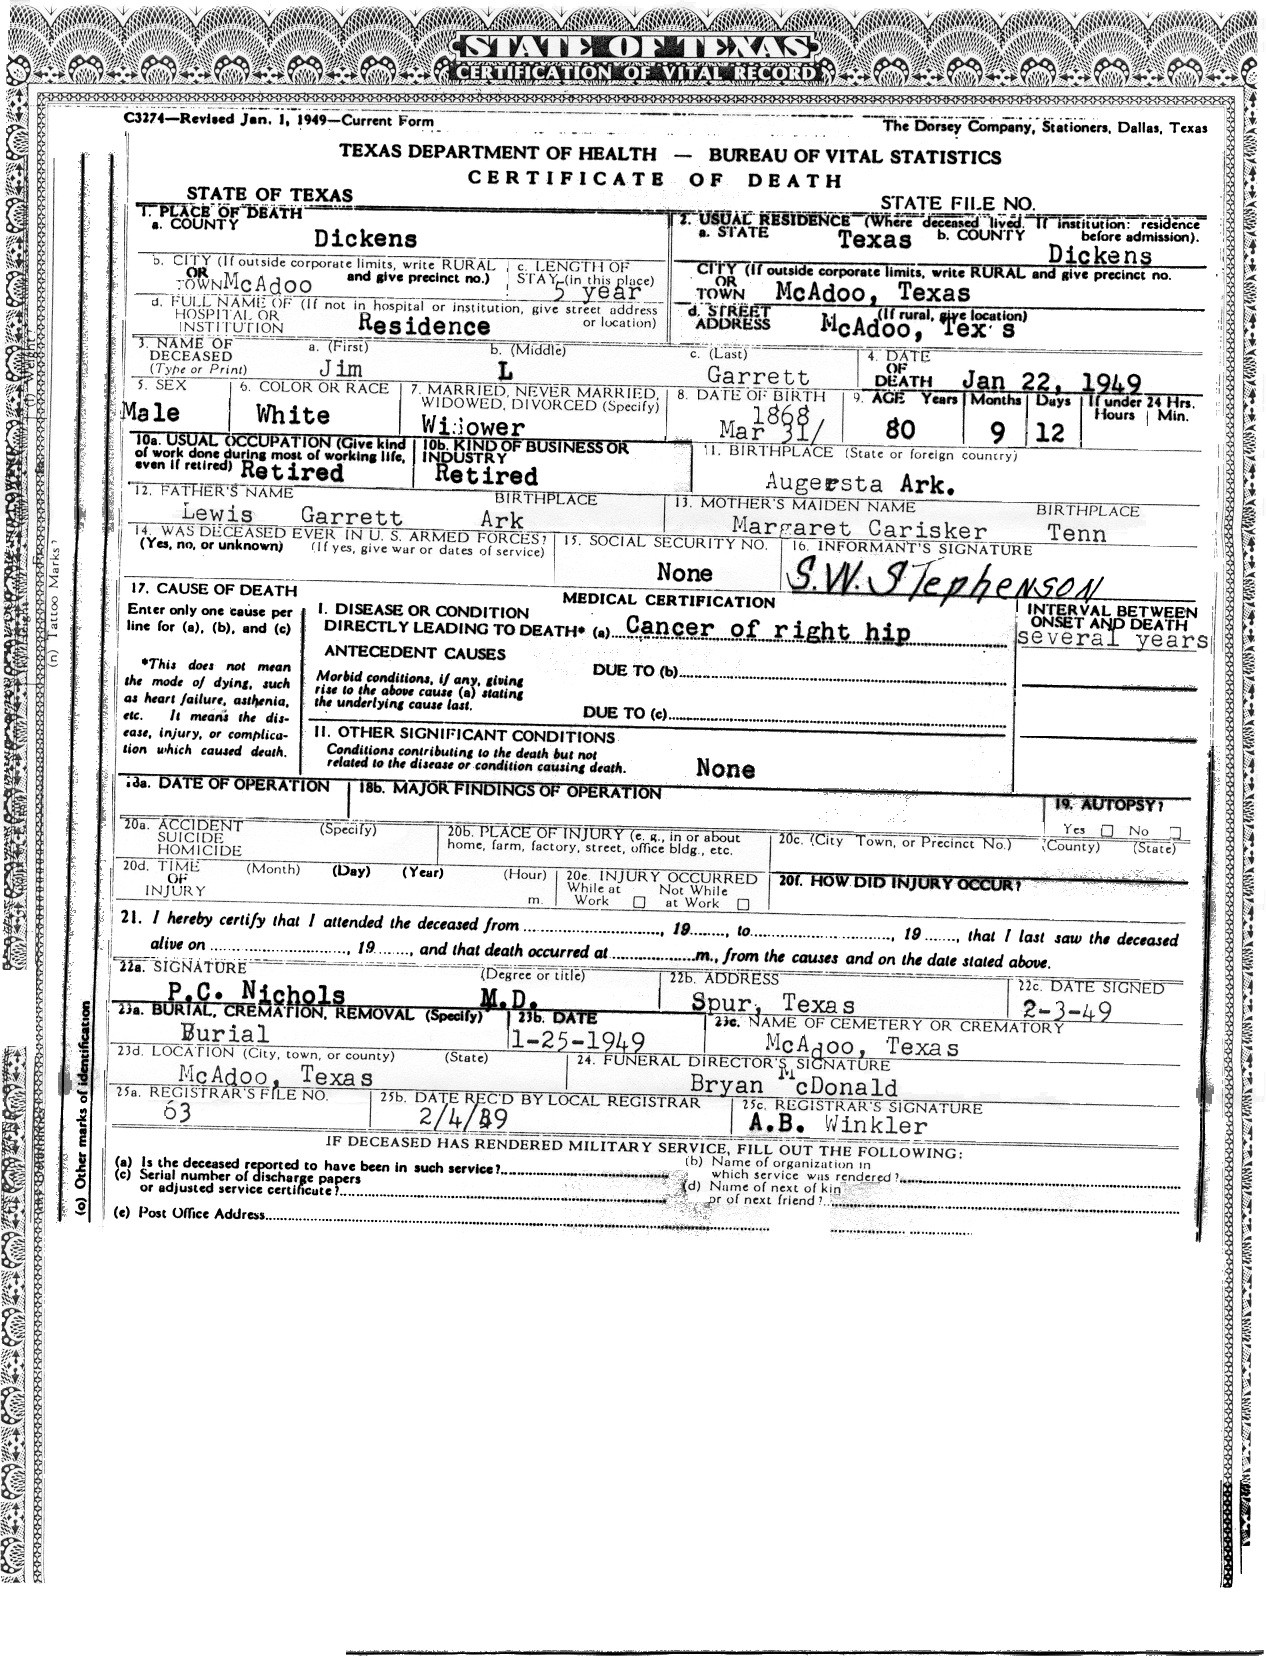 STATE OF TEXAS
CERTIFICATION OF VITAL RECORD
C3274—Revised Jan. 1, 1949—Current Form
The Dorsey Company, Stationers, Dallas, Texas
TEXAS DEPARTMENT OF HEALTH — BUREAU OF VITAL STATISTICS
CERTIFICATE OF DEATH
STATE OF TEXAS
STATE FILE NO.
1. PLACE OF DEATH
a. COUNTY
Dickens
2. USUAL RESIDENCE (Where deceased lived. If institution: residence before admission).
a. STATE Texas b. COUNTY Dickens
b. CITY (If outside corporate limits, write RURAL and give precinct no.)
OR
TOWN McAdoo
c. LENGTH OF STAY (in this place)
5 year
CITY (If outside corporate limits, write RURAL and give precinct no.
OR
TOWN McAdoo, Texas
d. FULL NAME OF (If not in hospital or institution, give street address or location)
HOSPITAL OR
INSTITUTION Residence
d. STREET ADDRESS (If rural, give location)
McAdoo, Tex s
3. NAME OF DECEASED
(Type or Print)
a. (First) Jim
b. (Middle) L
c. (Last) Garrett
4. DATE OF DEATH Jan 22, 1949
5. SEX
Male
6. COLOR OR RACE
White
7. MARRIED, NEVER MARRIED, WIDOWED, DIVORCED (Specify)
Widower
8. DATE OF BIRTH
1868
Mar 31/
9. AGE Years 80
Months 9
Days 12
If under 24 Hrs.
Hours Min.
10a. USUAL OCCUPATION (Give kind of work done during most of working life, even if retired) Retired
10b. KIND OF BUSINESS OR INDUSTRY
Retired
11. BIRTHPLACE (State or foreign country)
Augersta Ark.
12. FATHER'S NAME BIRTHPLACE
Lewis Garrett Ark
13. MOTHER'S MAIDEN NAME BIRTHPLACE
Margaret Carisker Tenn
14. WAS DECEASED EVER IN U. S. ARMED FORCES?
(Yes, no, or unknown) (If yes, give war or dates of service)
15. SOCIAL SECURITY NO.
None
16. INFORMANT'S SIGNATURE
S.W. Stephenson
17. CAUSE OF DEATH
Enter only one cause per line for (a), (b), and (c)
*This does not mean the mode of dying, such as heart failure, asthenia, etc. It means the disease, injury, or complication which caused death.
MEDICAL CERTIFICATION
I. DISEASE OR CONDITION
DIRECTLY LEADING TO DEATH* (a) Cancer of right hip
INTERVAL BETWEEN ONSET AND DEATH
several years
ANTECEDENT CAUSES
Morbid conditions, if any, giving rise to the above cause (a) stating the underlying cause last.
DUE TO (b)
DUE TO (c)
II. OTHER SIGNIFICANT CONDITIONS
Conditions contributing to the death but not related to the disease or condition causing death.
None
18a. DATE OF OPERATION
18b. MAJOR FINDINGS OF OPERATION
19. AUTOPSY?
Yes No
20a. ACCIDENT (Specify)
SUICIDE
HOMICIDE
20b. PLACE OF INJURY (e. g., in or about home, farm, factory, street, office bldg., etc.
20c. (City Town, or Precinct No.) (County) (State)
20d. TIME OF INJURY (Month) (Day) (Year) (Hour) m.
20e. INJURY OCCURRED
While at Work Not While at Work
20f. HOW DID INJURY OCCUR?
21. I hereby certify that I attended the deceased from , 19 , to , 19 , that I last saw the deceased
alive on , 19 , and that death occurred at m., from the causes and on the date stated above.
22a. SIGNATURE (Degree or title)
P.C. Nichols M.D.
22b. ADDRESS
Spur, Texas
22c. DATE SIGNED
2-3-49
23a. BURIAL, CREMATION, REMOVAL (Specify)
Burial
23b. DATE
1-25-1949
23c. NAME OF CEMETERY OR CREMATORY
McAdoo, Texas
23d. LOCATION (City, town, or county) (State)
McAdoo, Texas
24. FUNERAL DIRECTOR'S SIGNATURE
Bryan McDonald
25a. REGISTRAR'S FILE NO.
63
25b. DATE REC'D BY LOCAL REGISTRAR
2/4/49
25c. REGISTRAR'S SIGNATURE
A.B. Winkler
IF DECEASED HAS RENDERED MILITARY SERVICE, FILL OUT THE FOLLOWING:
(a) Is the deceased reported to have been in such service?
(b) Name of organization in which service was rendered?
(c) Serial number of discharge papers or adjusted service certificate?
(d) Name of next of kin or of next friend?
(e) Post Office Address
(n) Tattoo Marks?
(o) Other marks of identification